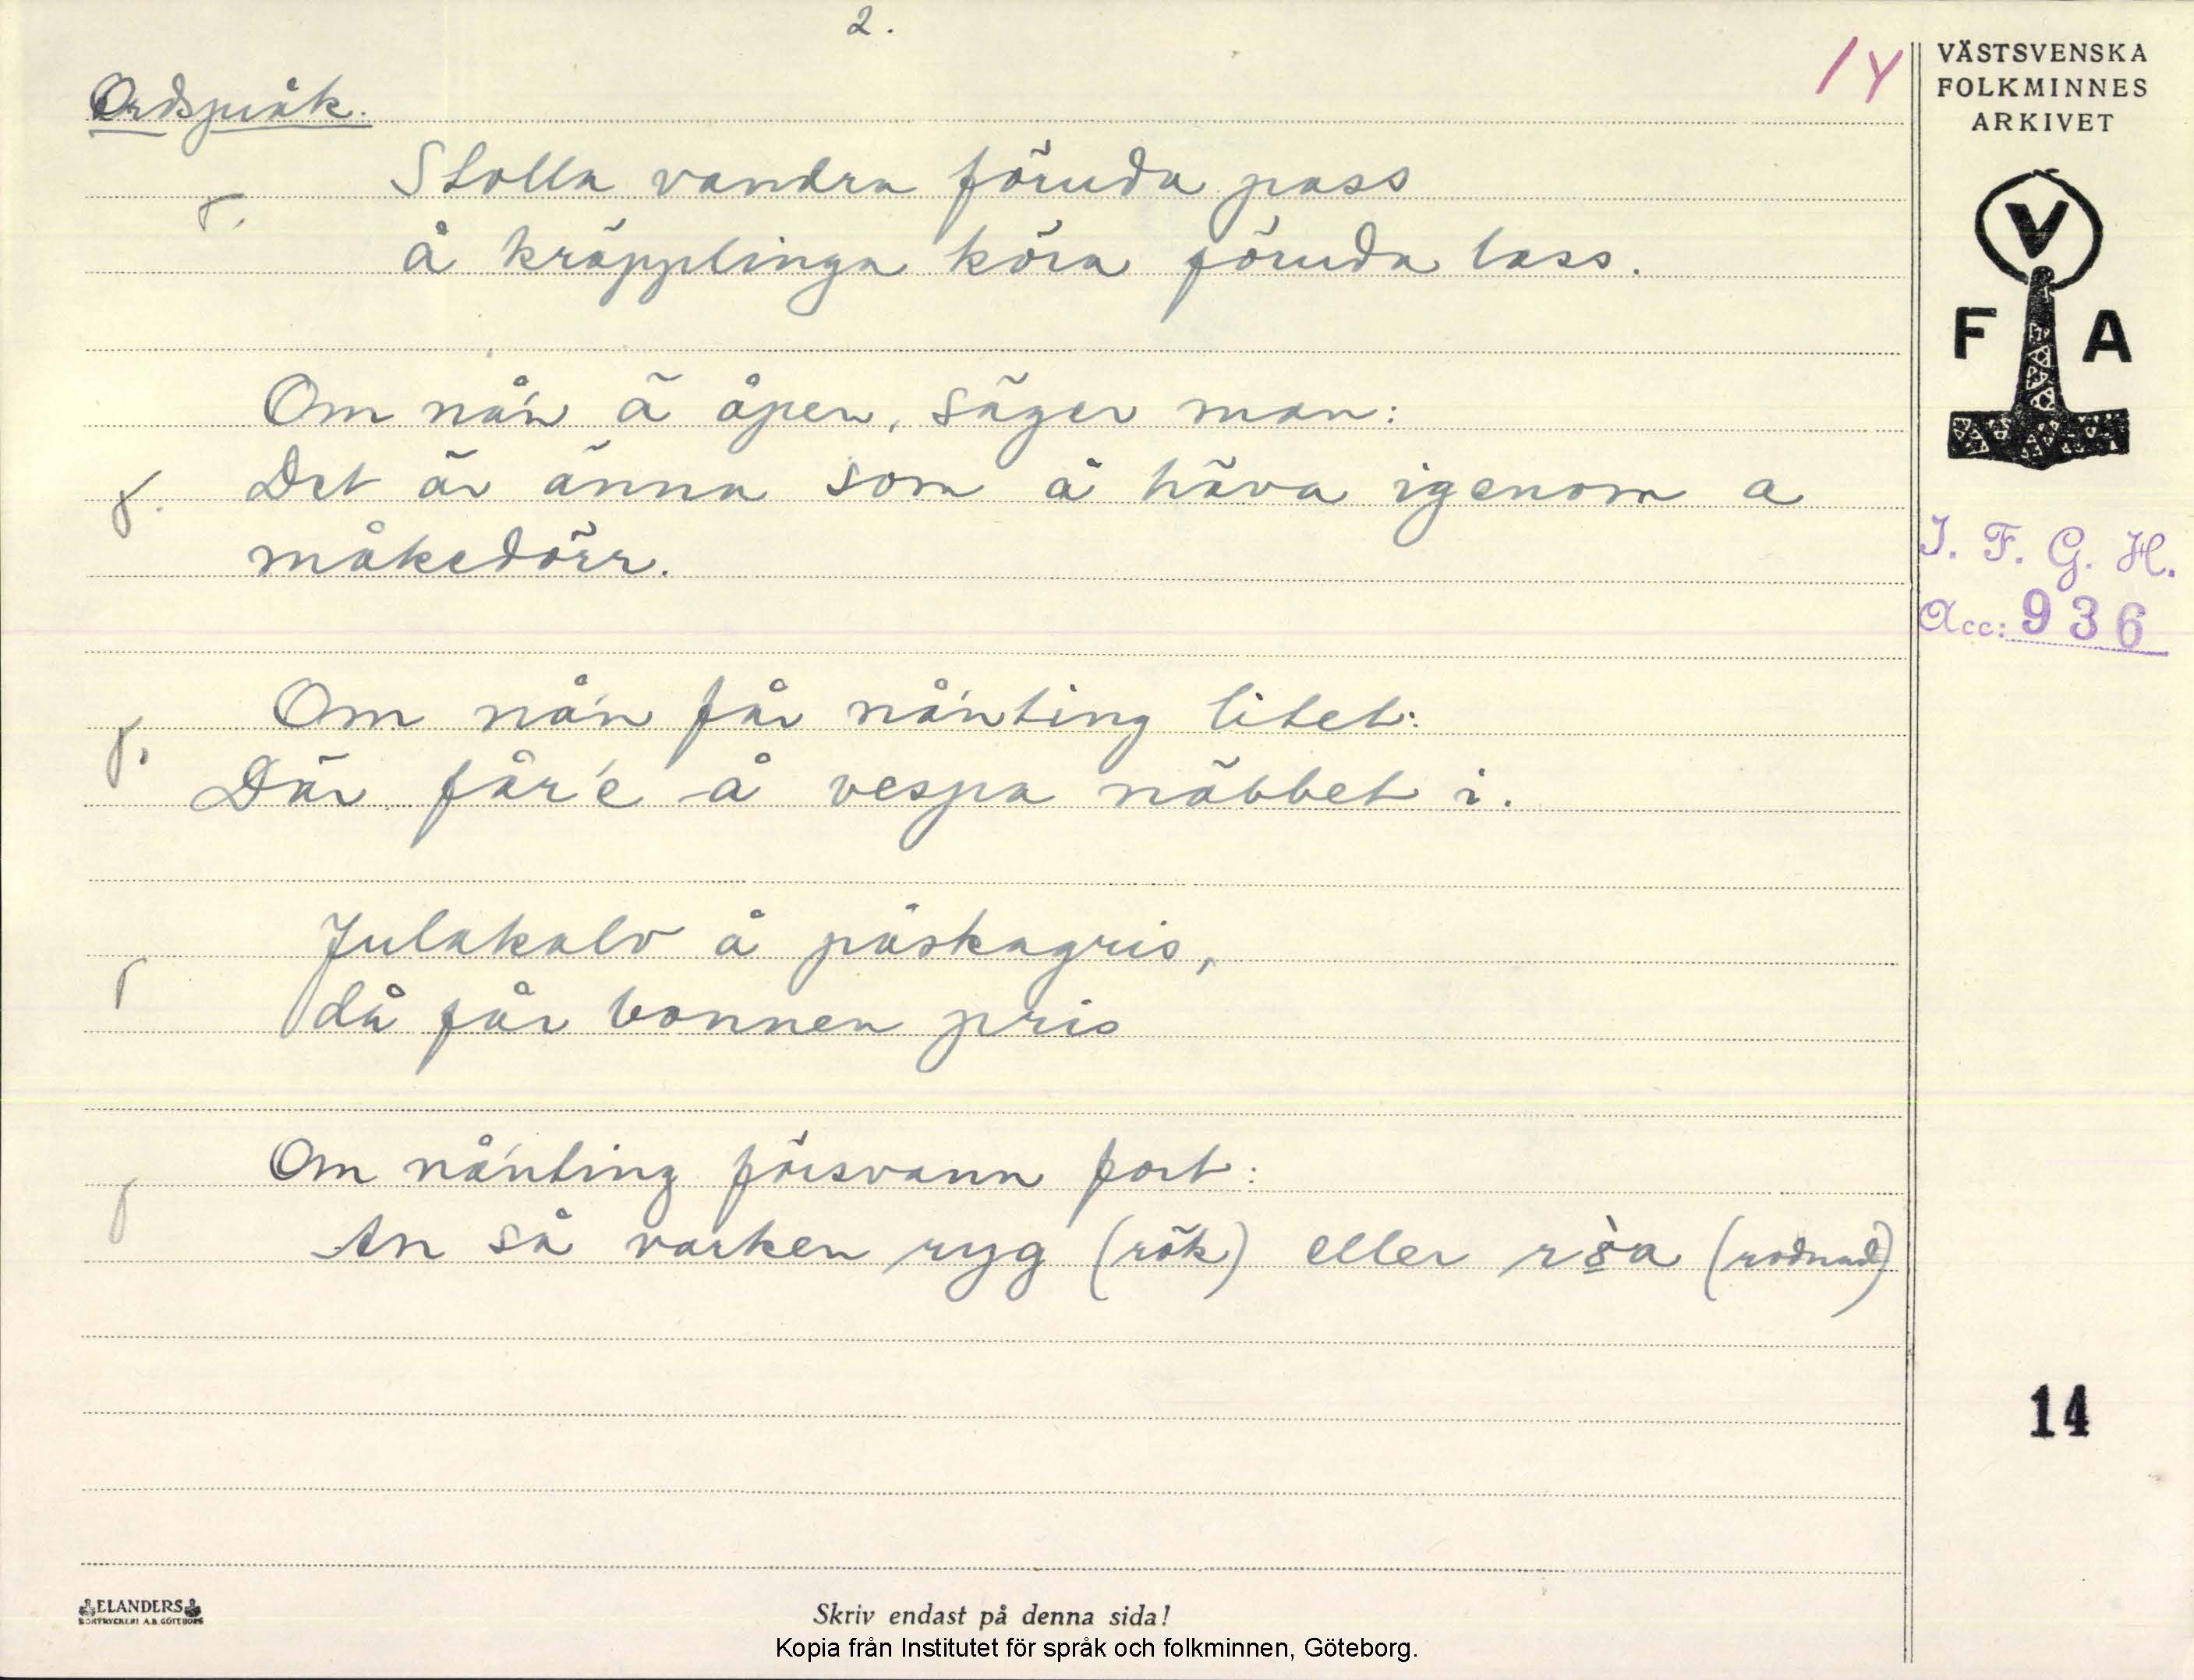 2.
14
Ordspråk.
Stolla vandra föruda pass
å kräpplinga köra föruda lass.
Om nå'n ä åpen, säger man:
Det är änna som å häva igenom a
måkedörr.
Om nå'n får nå'nting litet:
Där får'e å vespa näbbet i.
Julakalv å påskagris,
då får bonnen pris
Om nå'nting försvann fort:
An så varken ryg (rök) eller röa (rodnad)
VÄSTSVENSKA
FOLKMINNES
ARKIVET
V
F A
I. F. G. H.
Acc: 936
14
ELANDERS
BOKTRYCKERI A.B. GÖTEBORG
Skriv endast på denna sida!
Kopia från Institutet för språk och folkminnen, Göteborg.